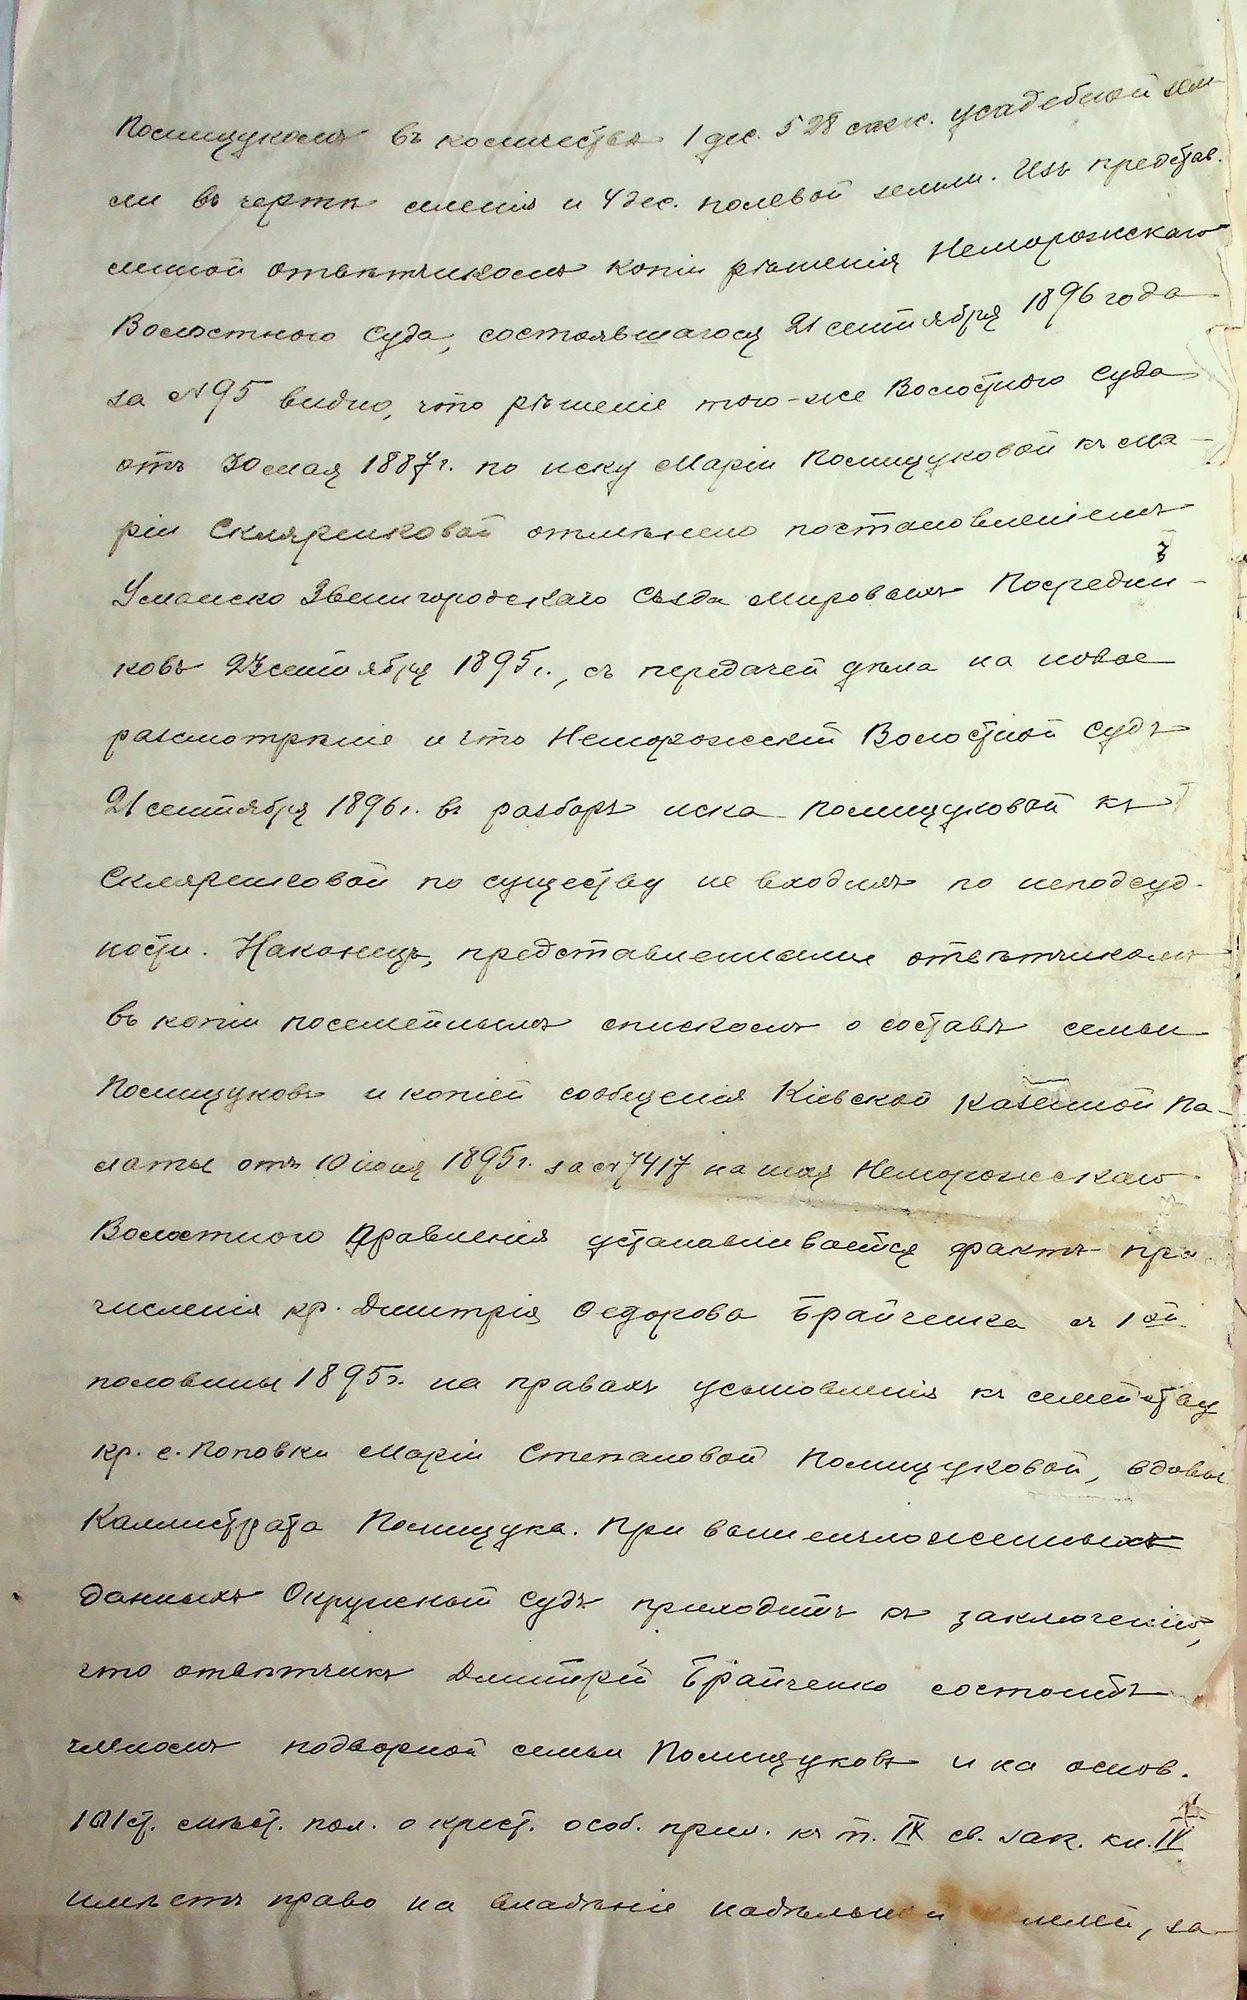 Полищукомъ въ количествѣ 1 дес. 528 саж. усадебной зем-
ли въ чертѣ имѣнія и 4 дес. полевой земли. Изъ представ-
ленной отвѣтчикомъ копіи рѣшенія Неморожскаго
Волостного Суда, состоявшагося 21 сентября 1896 года
за №95 видно, что рѣшеніе того-же Волостного Суда
отъ 30 мая 1887 г. по иску Маріи Полищуковой къ Ма-
ріи Скляренковой отмѣнено постановленіемъ
Уманско Звенигородскаго Съѣзда Мировыхъ Посредни-
ковъ 23 сентября 1895 г., съ передачей дѣла на новое
разсмотрѣніе и что Неморожскій Волостной Судъ
21 сентября 1896 г. въ разборъ иска Полищуковой къ
Скляренковой по существу не входилъ по неподсуд-
ности. Наконецъ, представленнымъ отвѣтчикомъ
въ копіи посемейнымъ спискомъ о составѣ семьи
Полищуковъ и копіей сообщенія Кіевской Казенной Па-
латы отъ 10 іюня 1895 г. за №7417 на имя Неморожскаго
Волостного Правленія устанавливается фактъ при-
численія кр. Дмитрія Ѳедорова Брайченка съ 1ой
половины 1895 г. на правахъ усыновленія къ семейству
кр. с. Поповки Маріи Степановой Полищуковой, вдовы
Каллистрата Полищука. При вышеизложенныхъ
данныхъ Окружный Судъ приходитъ къ заключенію,
что отвѣтчикъ Дмитрій Брайченко состоитъ
членомъ подворной семьи Полищуковъ и на основ.
101 ст. мѣст. пол. о крест. особ. прил. къ т. IX св. зак. кн. IV
имѣетъ право на владѣніе надѣльной землей, за-